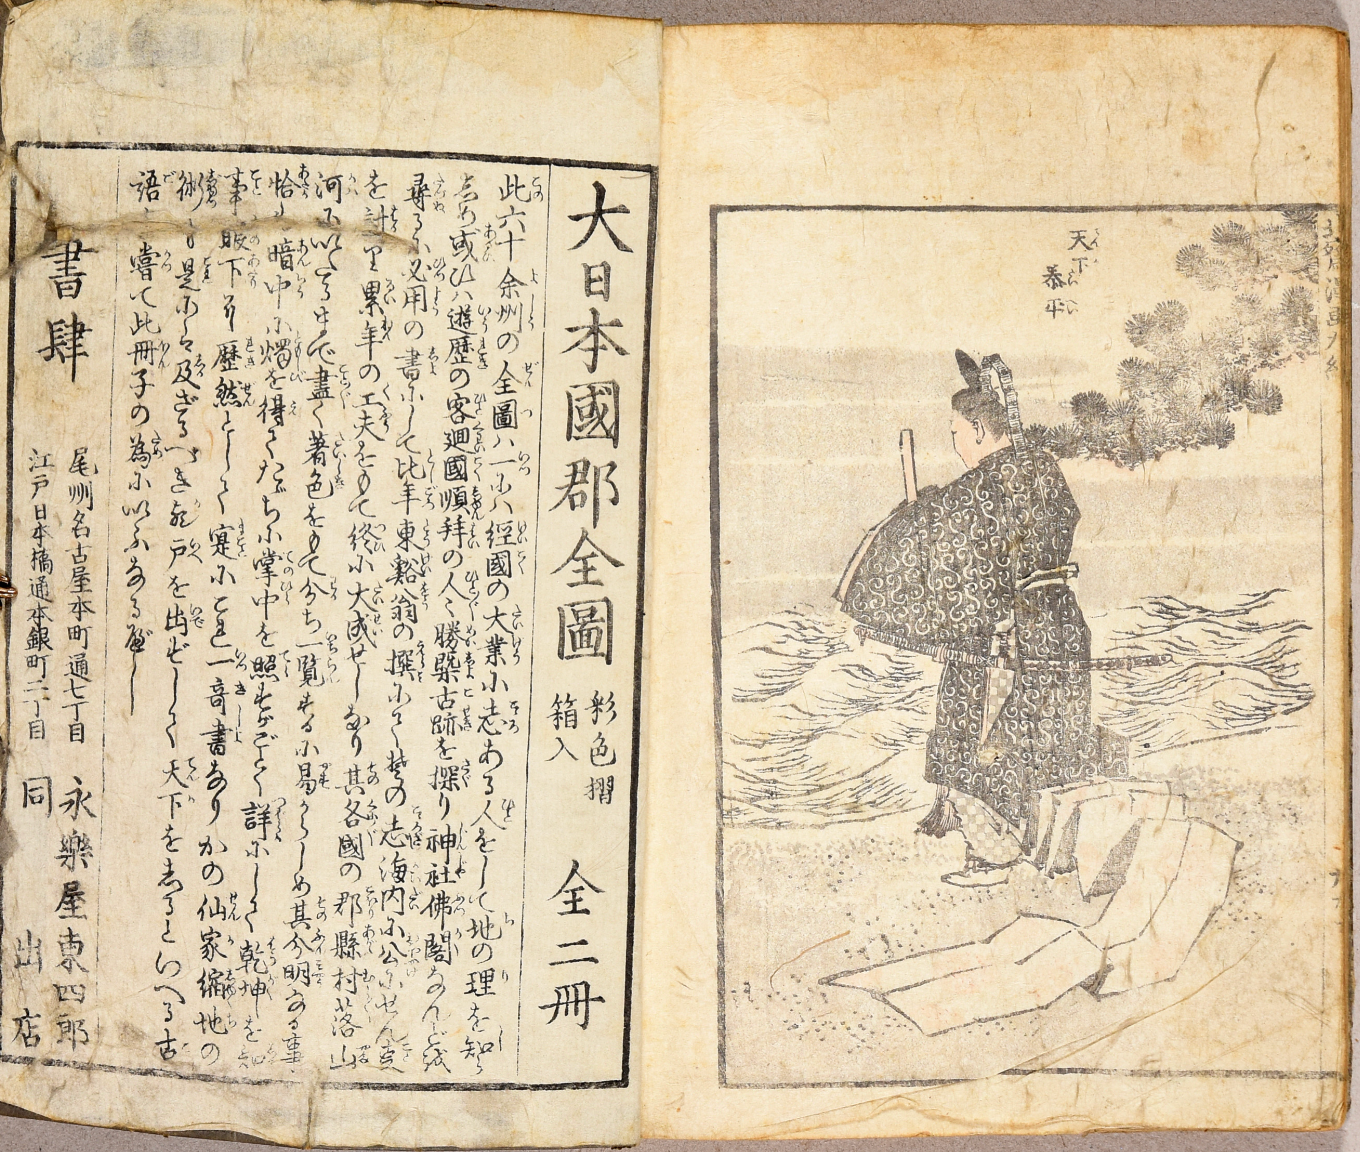 天下
泰平
大日本國郡全圖 彩色摺 箱入 全二冊
此六十余州の全圖ハ一つハ經國の大業に志ある人をして地の理を知ら
しめ或ひハ遊歴の客廻國順拝の人々勝槩古跡を探り神社佛閣なんどを
尋るに必用の書にして比年東谿翁の撰にて其の志海内に公にせん
を計り累年の工夫をもて終に大成せしなり其各國の郡縣村落山
河にいたるまで盡く著色をもて分ち一覧するに易からしめ其分明なる事
恰も暗中に燭を得てたゞちに掌中を照すがごとく詳にして乾坤を
眼下に歴然として寔にこれ一奇書なりかの仙家縮地の
術も是にハ及ざるべき
戸を出ずして天下をしるといへる古
語も嘗て此冊子の為にいふなるべし
書肆
尾州名古屋本町通七丁目 永樂屋東四郎
江戸日本橋通本銀町二丁目 同 出店